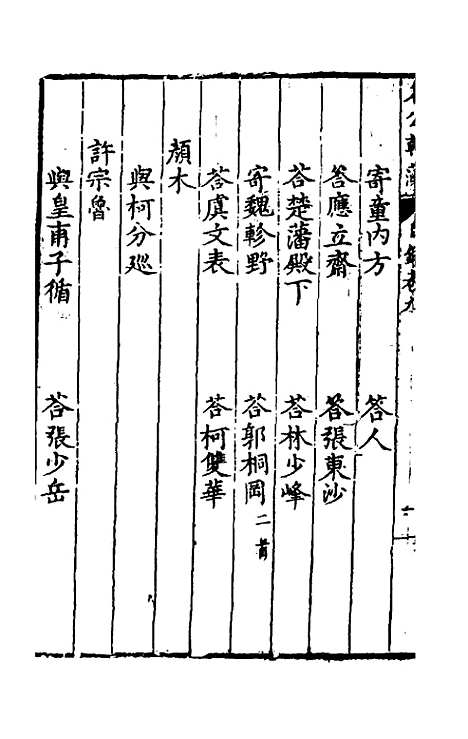 寄童內方 答人
答應立齋 答張東沙
答楚藩殿下 答林少峰
寄魏軫野 答郭桐岡二首
答虞文表 答柯雙華
顏木
與柯分巡
許宗魯
與皇甫子循 答張少岳